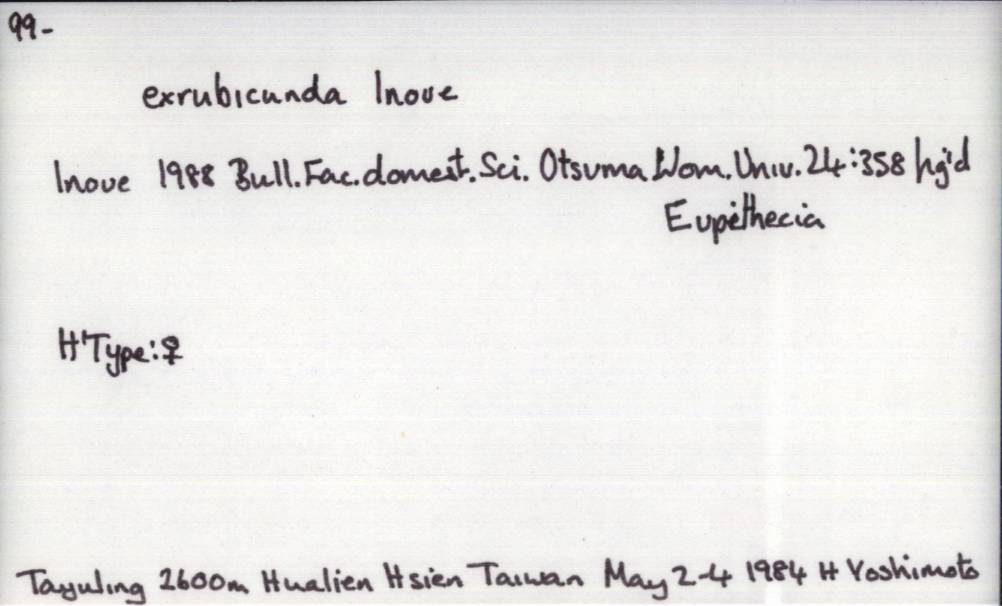 99-
exrubicunda Inoue
Inoue 1988 Bull.Fac.domest.Sci. Otsuma Wom.Univ.24:358 hg'd
Eupithecia
H'Type:♀
Tayuling 2600m Hualien Hsien Taiwan May 2-4 1984 H Yoshimoto